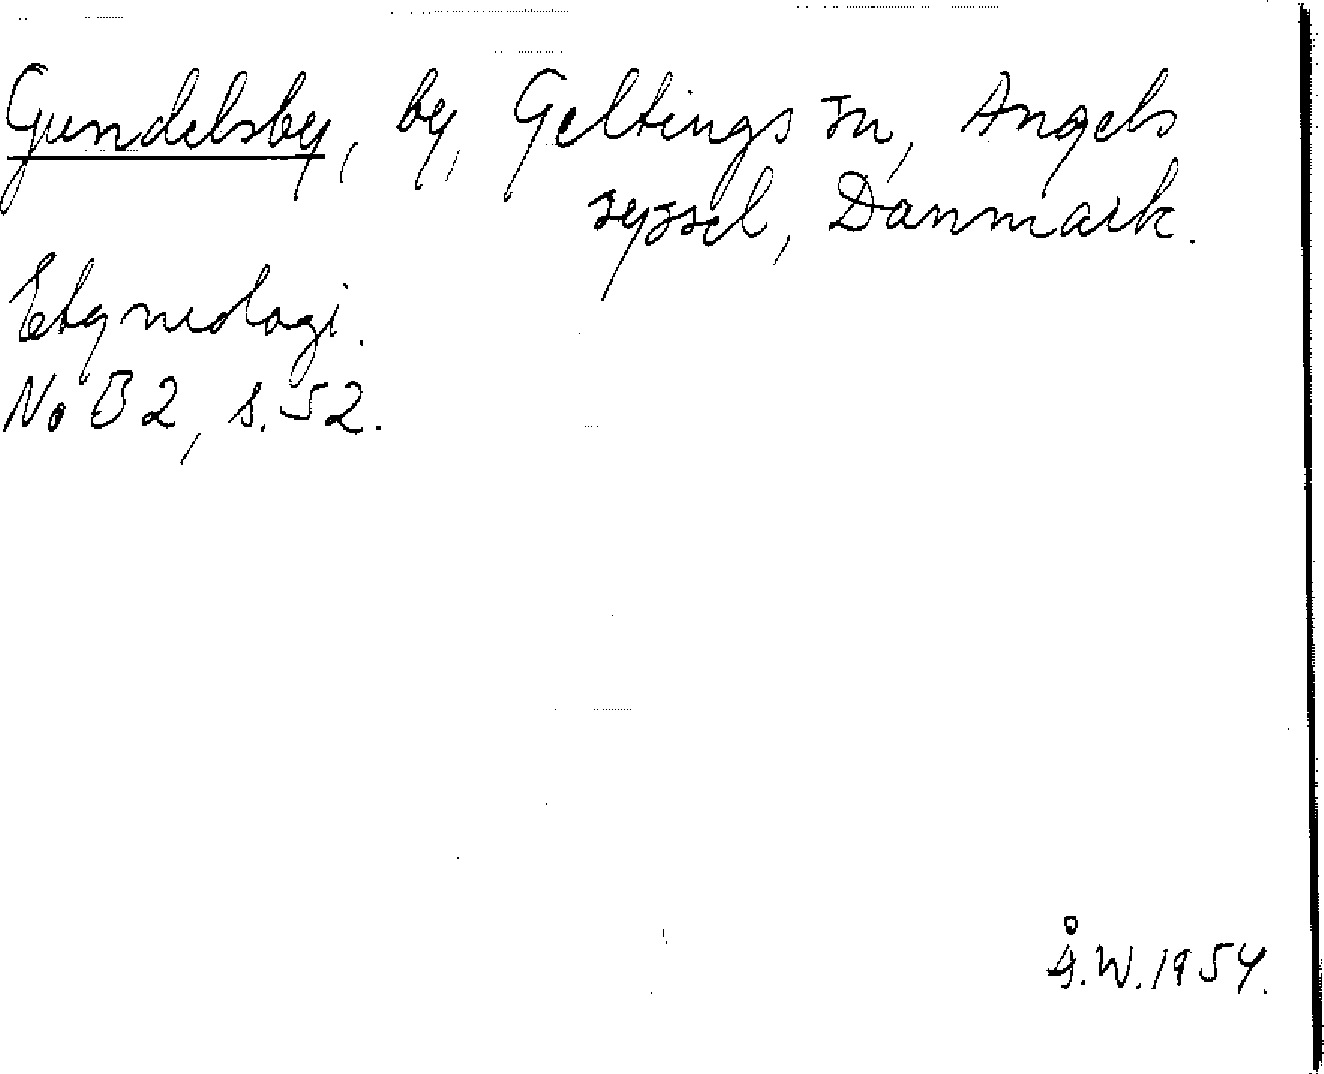 Gundelsby, by, Geltings sn, Angels
syssel, Danmark.
Etymologi.
NoB 2, s. 52.
Å.W. 1954.